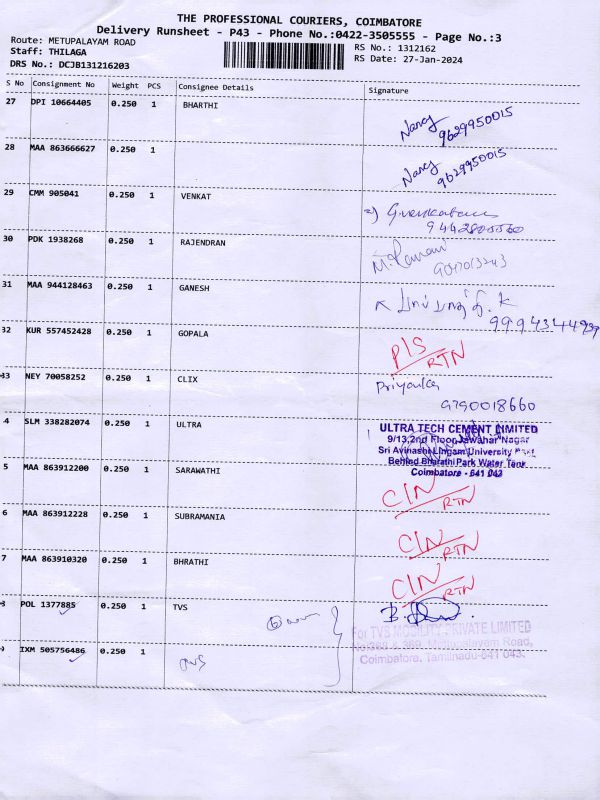 THE PROFESSIONAL COURIERS, COIMBATORE
Delivery Runsheet - P43 - Phone No.:0422-3505555 - Page No.:3
Route: METUPALAYAM ROAD
RS No.: 1312162
Staff: THILAGA
RS Date: 27-Jan-2024
DRS No.: DCJB131216203
S No Consignment No Weight PCS Consignee Details Signature
27 DPI 10664405 0.250 1 BHARTHI
Nancy
9629950015
28 MAA 863666627 0.250 1
Nancy
9629950015
29 CMM 905041 0.250 1 VENKAT
9442805560
30 PDK 1938268 0.250 1 RAJENDRAN
31 MAA 944128463 0.250 1 GANESH
32 KUR 557452428 0.250 1 GOPALA
P/S
RTN
33 NEY 70058252 0.250 1 CLIX
Priyanka
9790018660
4 SLM 338282074 0.250 1 ULTRA
ULTRA TECH CEMENT LIMITED
9/13,2nd Floor,Jawahar Nagar
Sri Avinashi Lingam University Post,
Behind Bharathi Park Water Tank
Coimbatore - 641 043
5 MAA 863912200 0.250 1 SARAWATHI
C/N
RTN
6 MAA 863912228 0.250 1 SUBRAMANIA
C/N
RTN
7 MAA 863910320 0.250 1 BHRATHI
C/N
RTN
POL 1377885 0.250 1 TVS
For TVS MOBILITY PRIVATE LIMITED
Mettupalayam Road,
Coimbatore, Tamilnadu-641 043.
IXM 505756486 0.250 1
TVS